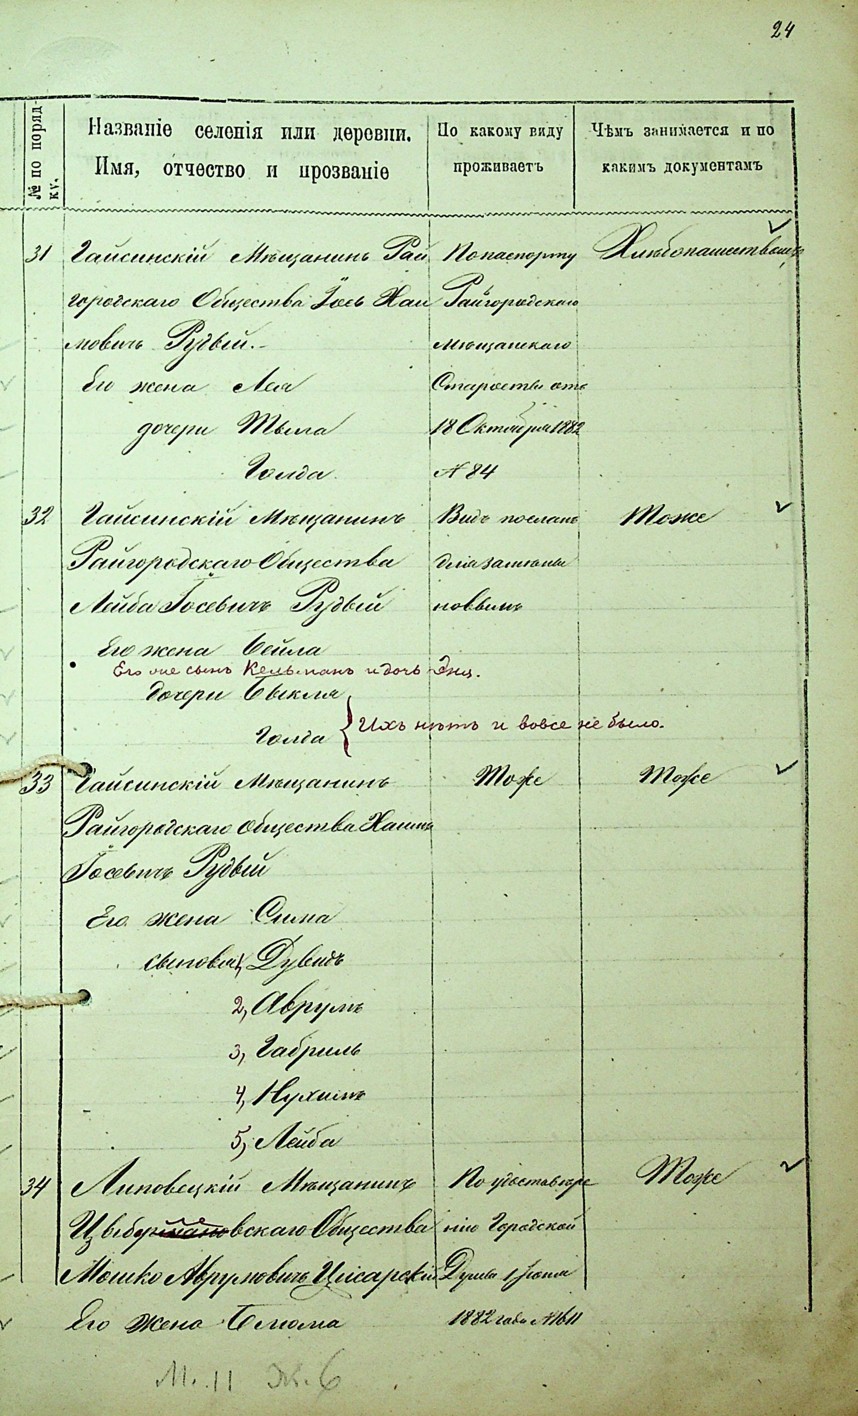 24
№ по поряд-
ку.
Названіе селенія или деревни.
Имя, отчество и прозваніе
По какому виду
проживаетъ
Чѣмъ занимается и по
какимъ документамъ
31 Гайсинскій Мѣщанинъ Рай По паспорту
городскаго Общества Іось Хаи Райгородскаго
мовичъ Рудый.- мѣщанскаго
Его жена Лея Старосты отъ
дочери Тыла 18 Октября 1882
Голда № 84
32 Гайсинскій Мѣщанинъ Видъ посланъ Тоже
Райгородскаго Общества для замѣны
Лейба Іосевичъ Рудый новымъ
Его жена Бейла
Его же сынъ Кельманъ и дочь
дочери
Голда } Ихъ нѣтъ и вовсе не было.
33 Гайсинскій Мѣщанинъ Тоже Тоже
Райгородскаго Общества Хаимъ
Іосевичъ Рудый
Его жена Сима
сыновья 1, Дувидъ
2, Аврумъ
3, Габриль
4, Нухимъ
5, Лейба
34 Липовецкій Мѣщанинъ По удостовѣре Тоже
Общества нію Городской
Мошко Аврумовичъ Думы
Его жена Блюма 1882 года № 1611
М. 11 Ж. 6